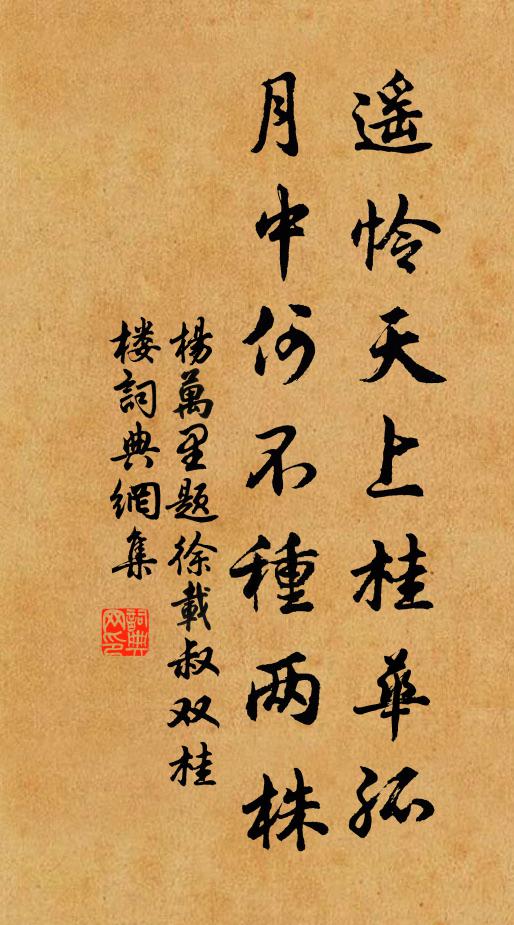 遥怜天上桂華孤
月中何不種两株
楊萬里题徐載叔双桂
楼詞典網集
詞典网印